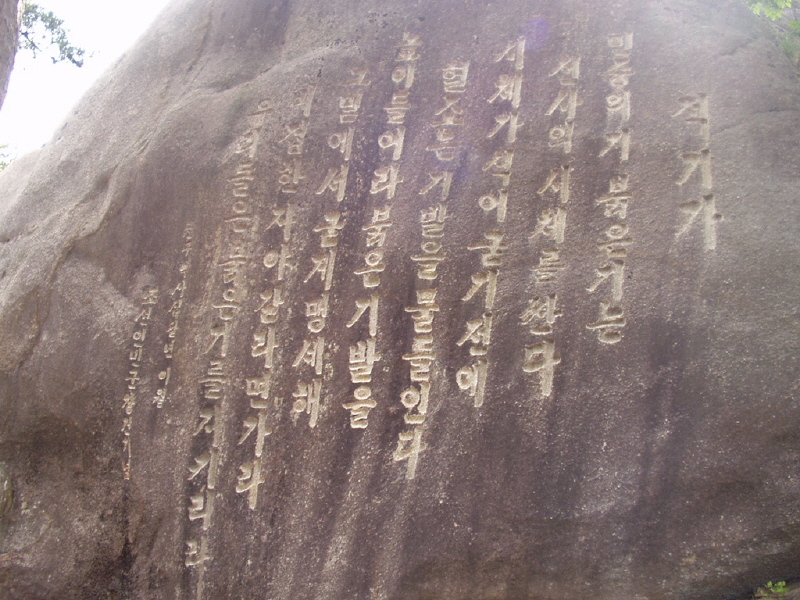 적기가
민중의기 붉은기는
전사의 시체를 싼다
시체가 식어 굳기전에
혈조는 기발을 물들인다
높이들어라 붉은 기발을
그밑에서 굳게 맹세해
비겁한 자야 갈라면가라
우리들은 붉은기를 지키리라
이월
조선인민군